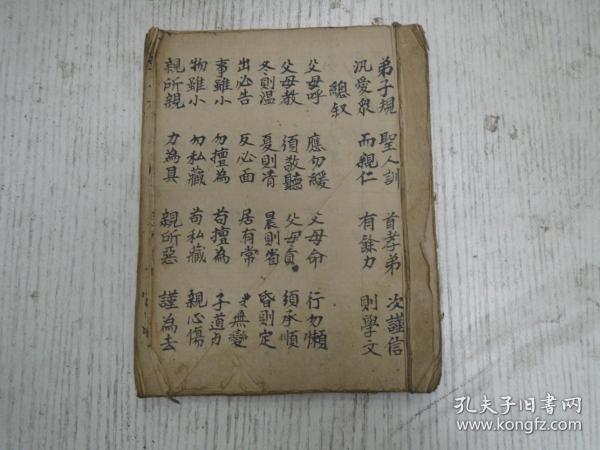 弟子規 聖人訓 首孝弟 次謹信
汎愛眾 而親仁 有餘力 則學文
總叙
父母呼 應勿緩 父母命 行勿懶
父母教 須敬聽 父母責 須承順
冬則温 夏則凊 晨則省 昏則定
出必告 反必面 居有常 業無變
事雖小 勿擅為 苟擅為 子道虧
物雖小 勿私藏 苟私藏 親心傷
親所親 力為具 親所惡 謹為去
孔夫子旧书网
www.kongfz.com